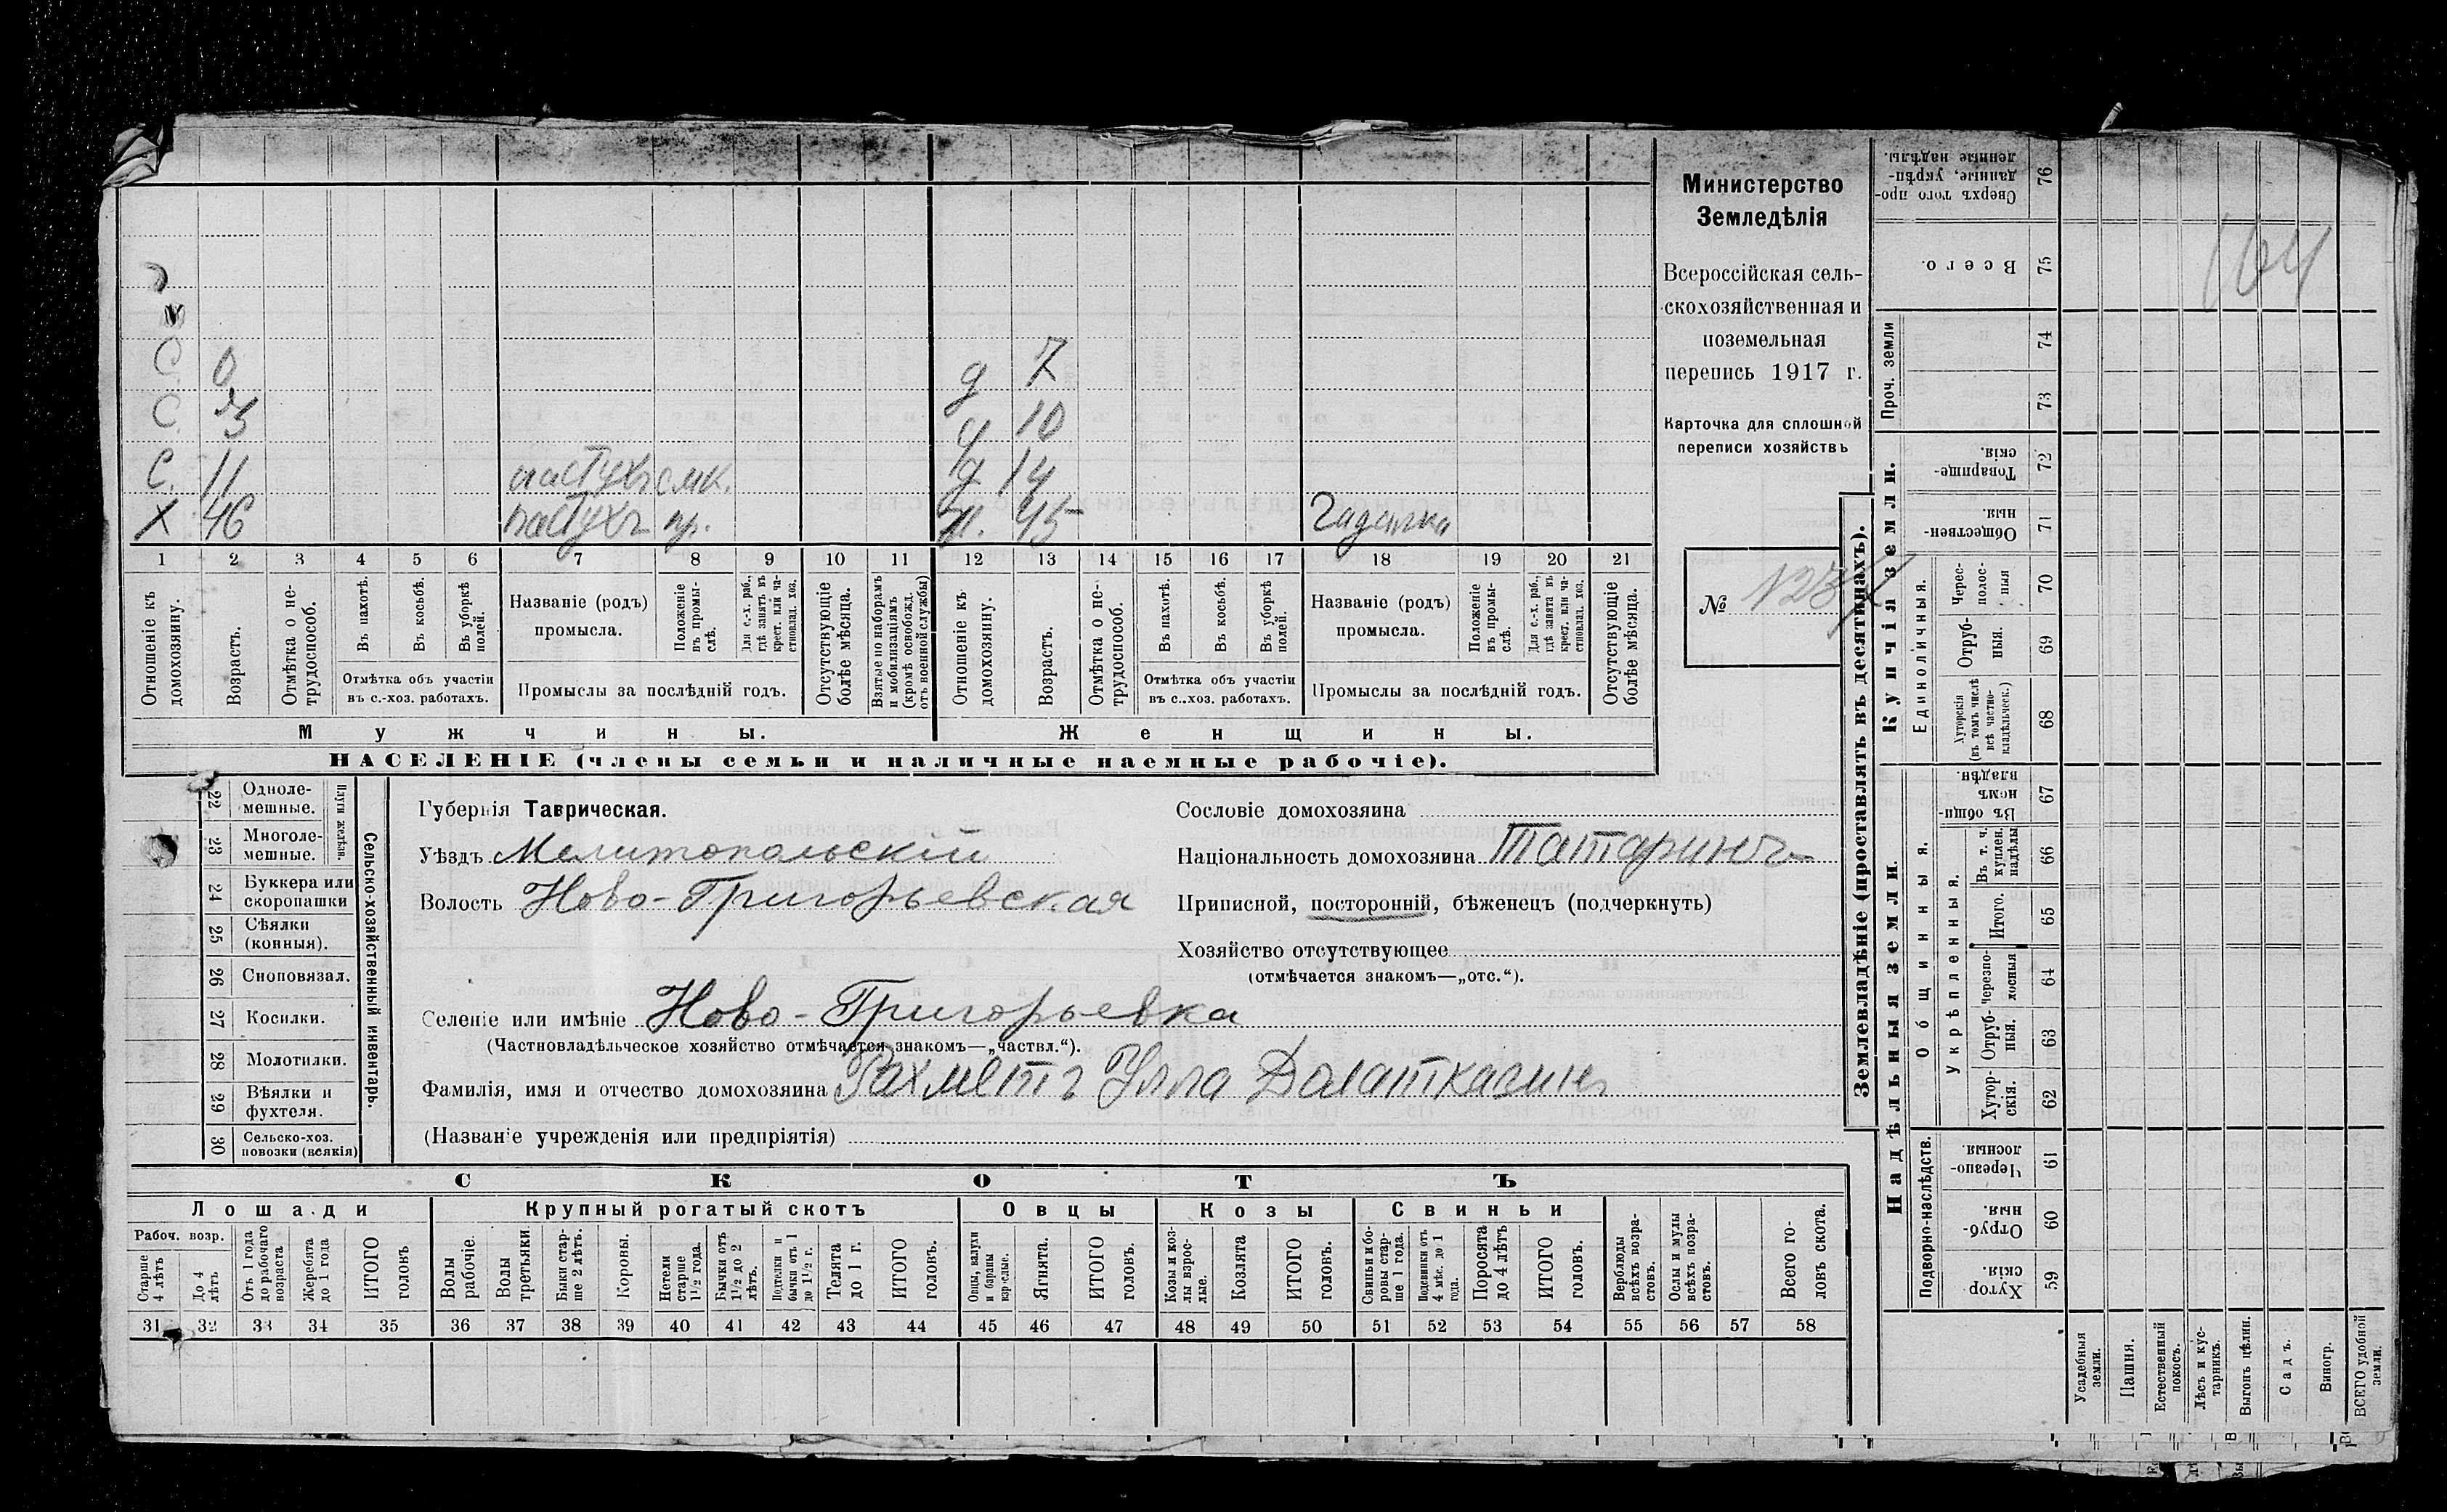 Министерство
Земледѣлія
Всероссійская сель-
скохозяйственная и
поземельная
перепись 1917 г.
Карточка для сплошной
переписи хозяйствъ
№ 123
104
С. 0 д 7
С. 10
С. 11 пастухъ д 14
Х 46 пастухъ пр. 45 Гадалка
1 2 3 4 5 6 7 8 9 10 11 12 13 14 15 16 17 18 19 20 21
Отношеніе къ домохозяину.
Возрастъ.
Отмѣтка о не-трудоспособ.
Въ пахотѣ.
Въ косьбѣ.
Въ уборкѣ полей.
Отмѣтка объ участіи
въ с.-хоз. работахъ.
Названіе (родъ)
промысла.
Положеніе въ промы-слѣ.
Для с.-х. раб., гдѣ занятъ въ крест. или ча-стновлад. хоз.
Промыслы за послѣдній годъ.
Отсутствующіе болѣе мѣсяца.
Взятые по наборамъ и мобилизаціямъ (кромѣ освобожд. отъ военной службы)
Отношеніе къ домохозяину.
Возрастъ.
Отмѣтка о не-трудоспособ.
Въ пахотѣ.
Въ косьбѣ.
Въ уборкѣ полей.
Отмѣтка объ участіи
въ с..хоз. работахъ.
Названіе (родъ)
промысла.
Положеніе въ промы-слѣ.
Для с.-х. раб., гдѣ занята въ крест. или ча-стновлад. хоз.
Промыслы за послѣдній годъ.
Отсутствующіе болѣе мѣсяца.
Мужчины. Женщины.
НАСЕЛЕНІЕ (члены семьи и наличные наемные рабочіе).
22 Одноле-мешные.
23 Многоле-мешные.
Плуги желѣзн.
24 Буккера или скоропашки
25 Сѣялки (конныя).
26 Сноповязал.
27 Косилки.
28 Молотилки.
29 Вѣялки и фухтеля.
30 Сельско-хоз. повозки (всякія)
Сельско-хозяйственный инвентарь.
Губернія Таврическая.
Уѣздъ Мелитопольскій
Волость Ново-Григорьевская
Сословіе домохозяина
Національность домохозяина Татаринъ
Приписной, посторонній, бѣженецъ (подчеркнуть)
Хозяйство отсутствующее
(отмѣчается знакомъ—„отс.“).
Селеніе или имѣніе Ново-Григорьевка
(Частновладѣльческое хозяйство отмѣчается знакомъ—„частвл.“).
Фамилія, имя и отчество домохозяина Рахметъ Улла
(Названіе учрежденія или предпріятія)
СКОТЪ
Лошади Крупный рогатый скотъ Овцы Козы Свиньи
Рабоч. возр.
Старше 4 лѣтъ
До 4 лѣтъ
Отъ 1 года до рабочаго возраста
Жеребята до 1 года
ИТОГО головъ
Волы рабочіе.
Волы третьяки
Быки стар-ше 2 лѣтъ.
Коровы.
Нетели старше 1½ года.
Бычки отъ 1½ до 2 лѣтъ.
Подтелки и бычки отъ 1 до 1½ г.
Телята до 1 г.
ИТОГО головъ.
Овцы, валухи и бараны взрослые.
Ягнята.
ИТОГО головъ.
Козы и коз-лы взрос-лые.
Козлята
ИТОГО головъ.
Свиньи и бо-ровы стар-ше 1 года.
Подсвинки отъ 4 мѣс. до 1 года.
Поросята до 4 лѣтъ
ИТОГО головъ.
Верблюды всѣхъ возра-стовъ.
Ослы и мулы всѣхъ возра-стовъ.
Всего го-ловъ скота.
31 32 33 34 35 36 37 38 39 40 41 42 43 44 45 46 47 48 49 50 51 52 53 54 55 56 57 58
Землевладѣніе (проставлять въ десятинахъ).
Сверхъ того про-данные, укрѣп-ленные надѣлы. 76
Всего. 75
Проч. земли
74
73
Купчія земли.
Товарище-скія. 72
Обществен-ныя. 71
Единоличныя.
Черес-полос-ныя 70
Отруб-ныя. 69
Хуторскія (въ томъ числѣ всѣ частно-владѣльческ.) 68
Надѣльныя земли.
Общинныя.
Въ общи-номъ владѣн. 67
Укрѣпленныя.
Въ т. ч. куплен. надѣлы 66
Итого. 65
Черезпо-лосныя 64
Отруб-ныя. 63
Хутор-скія. 62
Подворно-наслѣдств.
Черезпо-лосныя 61
Отруб-ныя. 60
Хутор-скія. 59
Усадебныя земли.
Пашня.
Естественный покосъ.
Лѣсъ и кус-тарникъ.
Выгонъ цѣлин.
Садъ.
Виногр.
ВСЕГО удобной земли.